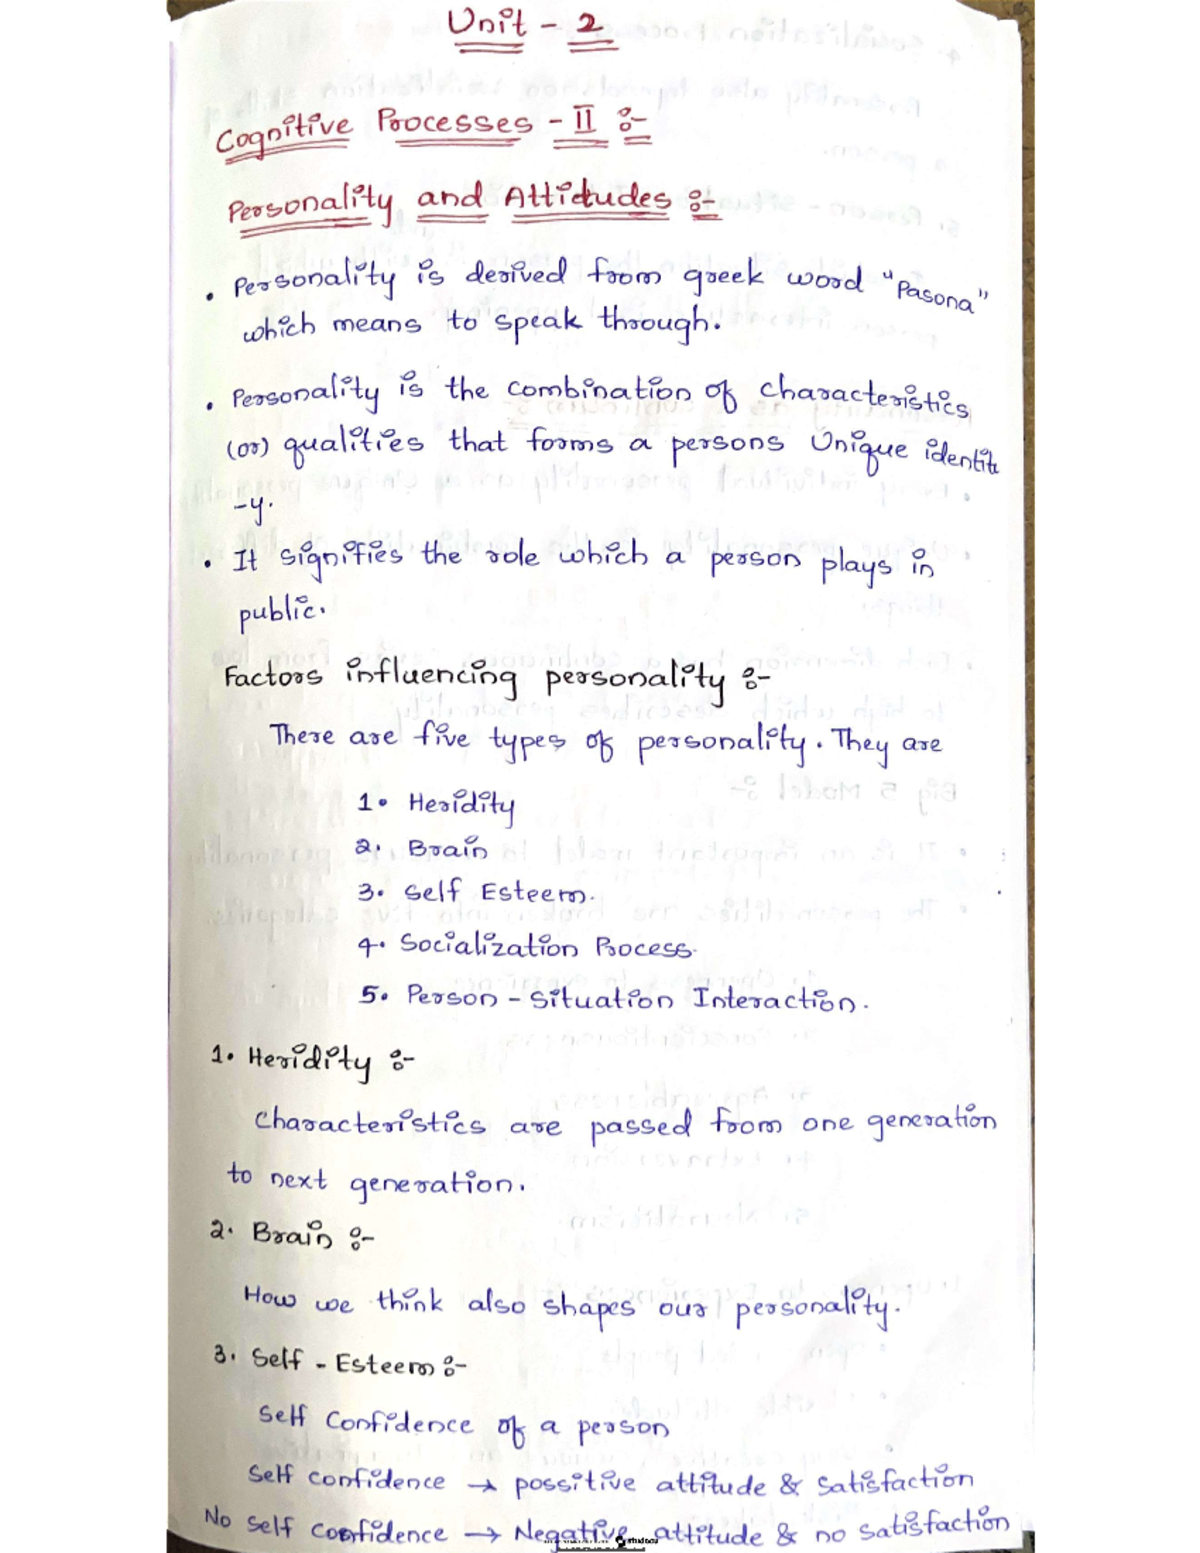 Unit - 2
Cognitive Processes - II :-
Personality and Attitudes :-
• Personality is derived from greek word "Pasona"
which means to speak through.
• Personality is the combination of characteristics
(or) qualities that forms a persons Unique identit
-y.
• It signifies the role which a person plays in
public.
Factors influencing personality :-
There are five types of personality. They are
1. Heridity
2. Brain
3. Self Esteem.
4. Socialization Process.
5. Person - Situation Interaction.
1. Heridity :-
Characteristics are passed from one generation
to next generation.
2. Brain :-
How we think also shapes our personality.
3. Self - Esteem :-
Self Confidence of a person
Self confidence → possitive attitude & Satisfaction
No self confidence → Negative attitude & no satisfaction